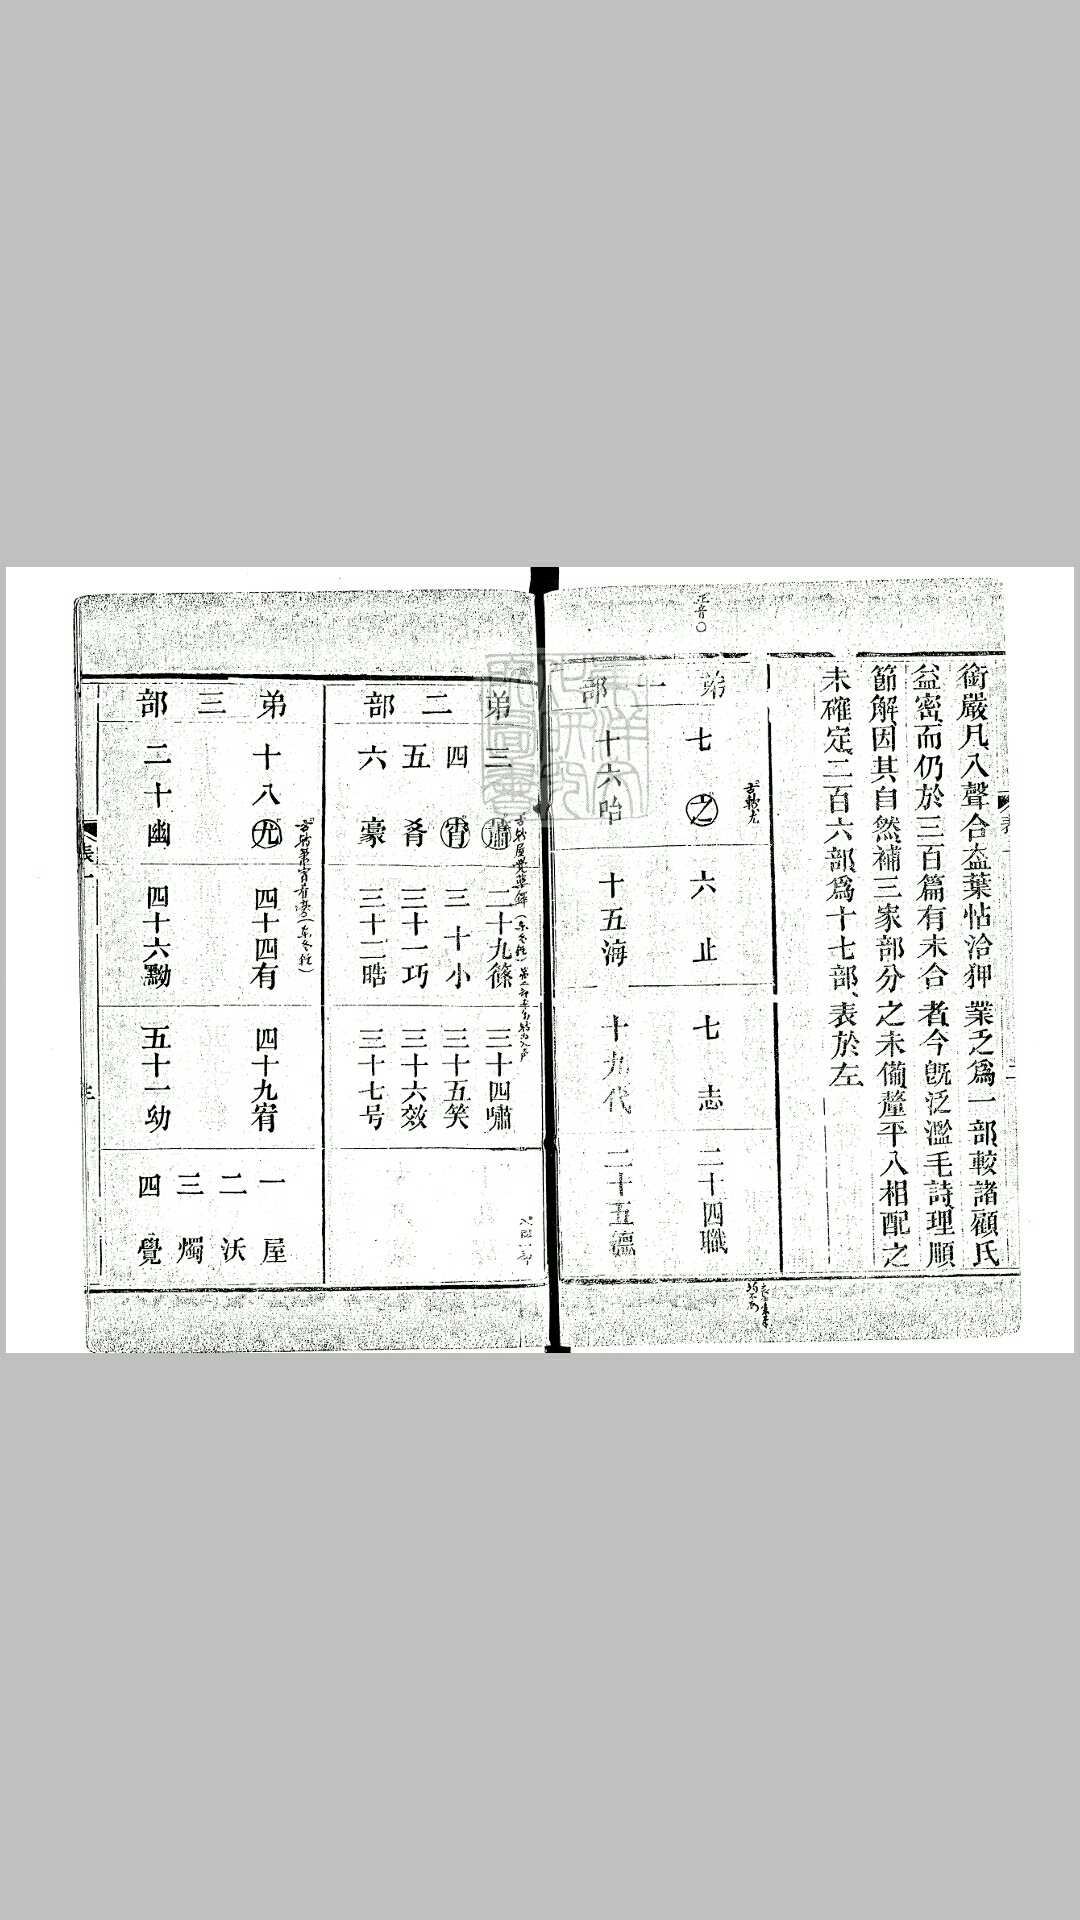 銜嚴凡入聲合盍葉怗洽狎業乏爲一部較諸顧氏
益密而仍於三百篇有未合者今旣泛濫毛詩理順
節解因其自然補三家部分之未備釐平入相配之
未確定二百六部爲十七部表於左
弟一部
七之 六止 七志 二十四職
十六咍 十五海 十九代 二十五德
弟二部
三蕭 二十九篠 三十四嘯
四宵 三十小 三十五笑
五肴 三十一巧 三十六效
六豪 三十二晧 三十七号
弟三部
十八尤 四十四有 四十九宥 一屋
二沃
三燭
二十幽 四十六黝 五十一幼 四覺
正音○